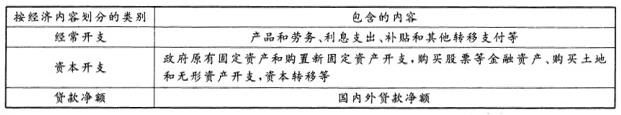 按经济内容划分的类别 包含的内容
经常开支 产品和劳务、利息支出、补贴和其他转移支付等
资本开支 政府原有固定资产和购置新固定资产开支,购买股票等金融资产、购买土地
和无形资产开支,资本转移等
贷款净额 国内外贷款净额